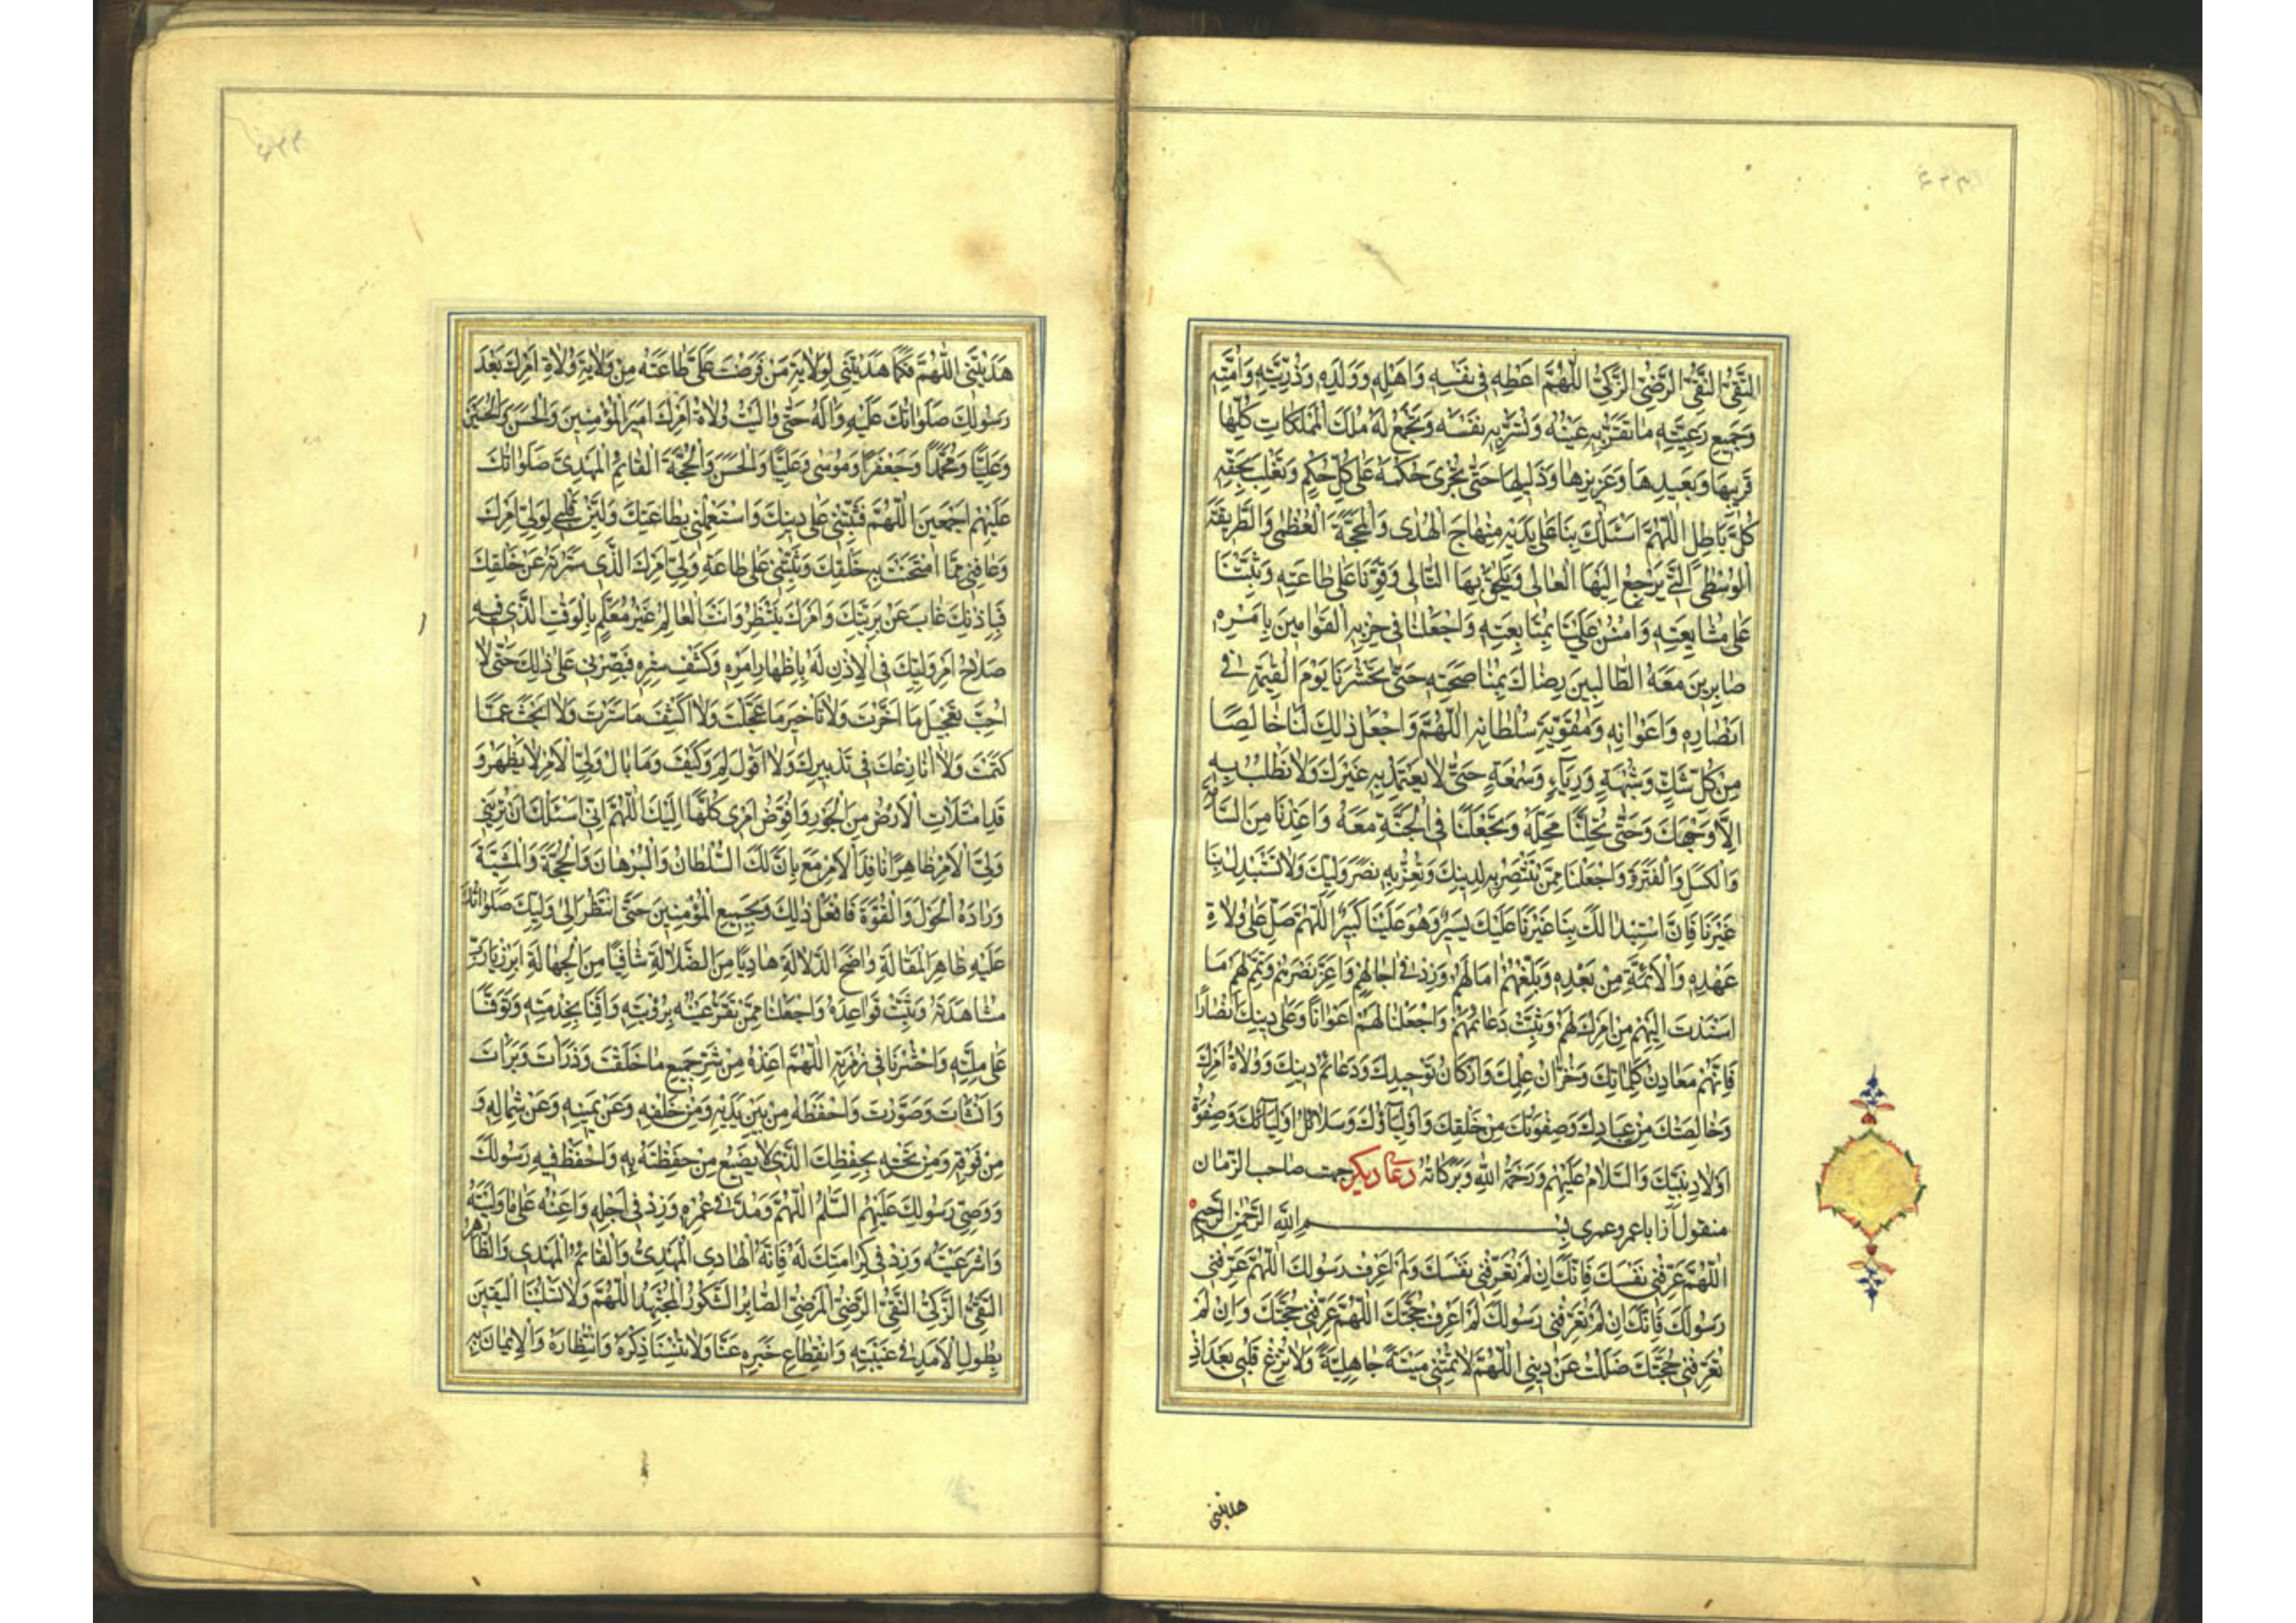 التَّقِىُّ النَّقِىُّ الرَّضِىُّ الزَّكِىُّ اللّٰهُمَّ اَعْطِهِ فى نَفْسِهِ وَاَهْلِهِ وَوَلَدِهِ وَذُرِّيَّتِهِ وَاُمَّتِهِ
وَجَميعِ رَعِيَّتِهِ ما تُقِرُّ بِهِ عَيْنَهُ وَتَسُرُّ بِهِ نَفْسَهُ وَتَجْمَعُ لَهُ مُلْكَ الْمَمْلَكاتِ كُلِّها
قَريبِها وَبَعيدِها وَعَزيزِها وَذَليلِها حَتّٰى تُجْرِىَ حُكْمَهُ عَلٰى كُلِّ حُكْمٍ وَتَغْلِبَ بِحَقِّهِ
كُلَّ باطِلٍ اللّٰهُمَّ اسْئَلُكَ بِنا عَلٰى يَدَيْهِ مِنْهاجَ الْهُدٰى وَالْمَحَجَّةَ الْعُظْمٰى وَالطَّريقَةَ
الْوُسْطَى الَّتى يَرْجِعُ اِلَيْهَا الْغالى وَيَلْحَقُ بِهَا التّالى وَقَوِّنا عَلٰى طاعَتِهِ وَثَبِّتْنا
عَلٰى مُشايَعَتِهِ وَامْنُنْ عَلَيْنا بِمُتابَعَتِهِ وَاجْعَلْنا فى حِزْبِهِ الْقَوّامينَ بِاَمْرِهِ
صابِرينَ مَعَهُ الطّالِبينَ رِضاكَ بِمُناصَحَتِهِ حَتّٰى تَحْشُرَنا يَوْمَ الْقِيٰمَةِ فى
اَنْصارِهِ وَاَعْوانِهِ وَمُقَوِّيَةِ سُلْطانِهِ اللّٰهُمَّ وَاجْعَلْ ذٰلِكَ لَنا خالِصًا
مِنْ كُلِّ شَكٍّ وَشُبْهَةٍ وَرِيآءٍ وَسُمْعَةٍ حَتّٰى لا يُعْتَمَدَ بِهِ غَيْرَكَ وَلا نَطْلُبَ بِهِ
اِلاّ وَجْهَكَ وَحَتّٰى تُحِلَّنا مَحَلَّهُ وَتَجْعَلَنا فِى الْجَنَّةِ مَعَهُ وَاَعِذْنا مِنَ السَّاْمَةِ
وَالْكَسَلِ وَالْفَتْرَةِ وَاجْعَلْنا مِمَّنْ تَنْتَصِرُ بِهِ لِدينِكَ وَتُعِزُّ بِهِ نَصْرَ وَلِيِّكَ وَلا تَسْتَبْدِلْ بِنا
غَيْرَنا فَاِنَّ اسْتِبْدالَكَ بِنا غَيْرَنا عَلَيْكَ يَسيرٌ وَهُوَ عَلَيْنا كَبيرٌ اللّٰهُمَّ صَلِّ عَلٰى وُلاةِ
عَهْدِهِ وَالْاَئِمَّةِ مِنْ بَعْدِهِ وَبَلِّغْهُمْ اٰمالَهُمْ وَزِدْ فى اٰجالِهِمْ وَاَعِزَّ نَصْرَهُمْ وَتَمِّمْ لَهُمْ ما
اَسْنَدْتَ اِلَيْهِمْ مِنْ اَمْرِكَ لَهُمْ وَثَبِّتْ دَعائِمَهُمْ وَاجْعَلْنا لَهُمْ اَعْوانًا وَعَلٰى دينِكَ اَنْصارًا
فَاِنَّهُمْ مَعادِنُ كَلِماتِكَ وَخُزّانُ عِلْمِكَ وَاَرْكانُ تَوْحيدِكَ وَدَعائِمُ دينِكَ وَوُلاةُ اَمْرِكَ
وَخالِصَتُكَ مِنْ عِبادِكَ وَصِفْوَتُكَ مِنْ خَلْقِكَ وَاَوْلِيآؤُكَ وَسَلائِلُ اَوْلِيآئِكَ وَصِفْوَةُ
اَوْلادِ نَبِيِّكَ وَالسَّلامُ عَلَيْهِمْ وَرَحْمَةُ اللّٰهِ وَبَرَكاتُهُ دعاء ديكر جهت صاحب الزمان
منقول از ابا عمرو عمرى بِسْمِ اللّٰهِ الرَّحْمٰنِ الرَّحيمِ
اللّٰهُمَّ عَرِّفْنى نَفْسَكَ فَاِنَّكَ اِنْ لَمْ تُعَرِّفْنى نَفْسَكَ وَلَمْ اَعْرِفْ رَسُولَكَ اللّٰهُمَّ عَرِّفْنى
رَسُولَكَ فَاِنَّكَ اِنْ لَمْ تُعَرِّفْنى رَسُولَكَ لَمْ اَعْرِفْ حُجَّتَكَ اللّٰهُمَّ عَرِّفْنى حُجَّتَكَ وَاِنْ لَمْ
تُعَرِّفْنى حُجَّتَكَ ضَلَلْتُ عَنْ دينى اللّٰهُمَّ لا تُمِتْنى ميتَةً جاهِلِيَّةً وَلا تُزِغْ قَلْبى بَعْدَ اِذْ
هديتنى
هَدَيْتَنى اللّٰهُمَّ فَكَما هَدَيْتَنى لِوِلايَةِ مَنْ فَرَضْتَ عَلَىَّ طاعَتَهُ مِنْ وِلايَةِ وُلاةِ اَمْرِكَ بَعْدَ
رَسُولِكَ صَلَواتُكَ عَلَيْهِ وَاٰلِهِ حَتّٰى والَيْتُ وُلاةَ اَمْرِكَ اَميرَ الْمُؤْمِنينَ وَالْحَسَنَ وَالْحُسَيْنَ
وَعَلِيًّا وَمُحَمَّدًا وَجَعْفَرًا وَمُوسٰى وَعَلِيًّا وَالْحَسَنَ وَالْحُجَّةَ الْقائِمَ الْمَهْدِىَّ صَلَواتُكَ
عَلَيْهِمْ اَجْمَعينَ اللّٰهُمَّ فَثَبِّتْنى عَلٰى دينِكَ وَاسْتَعْمِلْنى بِطاعَتِكَ وَلَيِّنْ قَلْبى لِوَلِىِّ اَمْرِكَ
وَعافِنى مِمَّا امْتَحَنْتَ بِهِ خَلْقَكَ وَثَبِّتْنى عَلٰى طاعَةِ وَلِىِّ اَمْرِكَ الَّذى سَتَرْتَهُ عَنْ خَلْقِكَ
فَبِاِذْنِكَ غابَ عَنْ بَرِيَّتِكَ وَاَمْرَكَ يَنْتَظِرُ وَاَنْتَ الْعالِمُ غَيْرُ مُعَلَّمٍ بِالْوَقْتِ الَّذى فيهِ
صَلاحُ اَمْرِ وَلِيِّكَ فِى الْاِذْنِ لَهُ بِاِظْهارِ اَمْرِهِ وَكَشْفِ سِتْرِهِ فَصَبِّرْنى عَلٰى ذٰلِكَ حَتّٰى لا
اُحِبَّ تَعْجيلَ ما اَخَّرْتَ وَلا تَاْخيرَ ما عَجَّلْتَ وَلا اَكْشِفَ ما سَتَرْتَ وَلا اَبْحَثَ عَمّا
كَتَمْتَ وَلا اُنازِعَكَ فى تَدْبيرِكَ وَلا اَقُولَ لِمَ وَكَيْفَ وَما بالُ وَلِىِّ الْاَمْرِ لا يَظْهَرُ وَ
قَدِ امْتَلَاَتِ الْاَرْضُ مِنَ الْجَوْرِ وَاُفَوِّضُ اَمْرى كُلَّها اِلَيْكَ اللّٰهُمَّ اِنّى اَسْئَلُكَ اَنْ تُرِيَنى
وَلِىَّ الْاَمْرِ ظاهِرًا نافِذَ الْاَمْرِ مَعَ بِاَنَّ لَكَ السُّلْطانَ وَالْبُرْهانَ وَالْحُجَّةَ وَالْمَشِيَّةَ
وَرادَهُ الْحَوْلَ وَالْقُوَّةَ فَافْعَلْ ذٰلِكَ وَبِجَميعِ الْمُؤْمِنينَ حَتّٰى اَنْظُرَ اِلٰى وَلِيِّكَ صَلَواتُكَ
عَلَيْهِ ظاهِرَ الْمَقالَةِ واضِحَ الدَّلالَةِ هادِيًا مِنَ الضَّلالَةِ شافِيًا مِنَ الْجَهالَةِ اَبْرِزْ يا رَبِّ
مُشاهَدَتَهُ وَثَبِّتْ قَواعِدَهُ وَاجْعَلْنا مِمَّنْ تَقَرُّ عَيْنُهُ بِرُؤْيَتِهِ وَاَقِمْنا بِخِدْمَتِهِ وَتَوَفَّنا
عَلٰى مِلَّتِهِ وَاحْشُرْنا فى زُمْرَتِهِ اللّٰهُمَّ اَعِذْهُ مِنْ شَرِّ جَميعِ ما خَلَقْتَ وَذَرَاْتَ وَبَرَاْتَ
وَاَنْشَاْتَ وَصَوَّرْتَ وَاحْفَظْهُ مِنْ بَيْنِ يَدَيْهِ وَمِنْ خَلْفِهِ وَعَنْ يَمينِهِ وَعَنْ شِمالِهِ وَ
مِنْ فَوْقِهِ وَمِنْ تَحْتِهِ بِحِفْظِكَ الَّذى لا يَضيعُ مَنْ حَفِظْتَهُ بِهِ وَاحْفَظْ فيهِ رَسُولَكَ
وَوَصِىَّ رَسُولِكَ عَلَيْهِمُ السَّلٰمُ اللّٰهُمَّ وَمُدَّ فى عُمْرِهِ وَزِدْ فى اَجَلِهِ وَاَعِنْهُ عَلٰى ما وَلَّيْتَهُ
وَاسْتَرْعَيْتَهُ وَزِدْ فى كَرامَتِكَ لَهُ فَاِنَّهُ الْهادِى الْمَهْدِىُّ وَالْقائِمُ الْمَهْدِى وَالطّاهِرُ
التَّقِىُّ الزَّكِىُّ النَّقِىُّ الرَّضِىُّ الْمَرْضِىُّ الصّابِرُ الشَّكُورُ الْمُجْتَهِدُ اللّٰهُمَّ وَلا تَسْلُبْنَا الْيَقينَ
بِطُولِ الْاَمَدِ فى غَيْبَتِهِ وَانْقِطاعِ خَبَرِهِ عَنّا وَلا تُنْسِنا ذِكْرَهُ وَانْتِظارَهُ وَالْايمانَ بِهِ